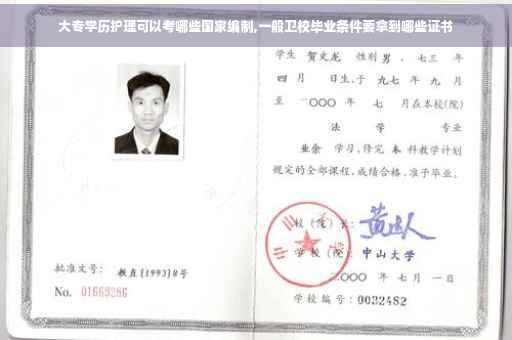 大专学历护理可以考哪些国家编制,一般卫校毕业条件要拿到哪些证书
学生 贺文龙 性别男、七三 年
四 月 日生,于 九七 年 九 月
至 二〇〇〇 年 七 月在本校(院)
法 学 专业
业余 学习,修完 本 科教学计划
规定的全部课程,成绩合格,准予毕业。
校(院)长:
学校(院): 中山大学
二〇〇〇 年 七 月 一 日
学校编号: 0032482
批准文号: 教直[1993]8号
No. 01669286